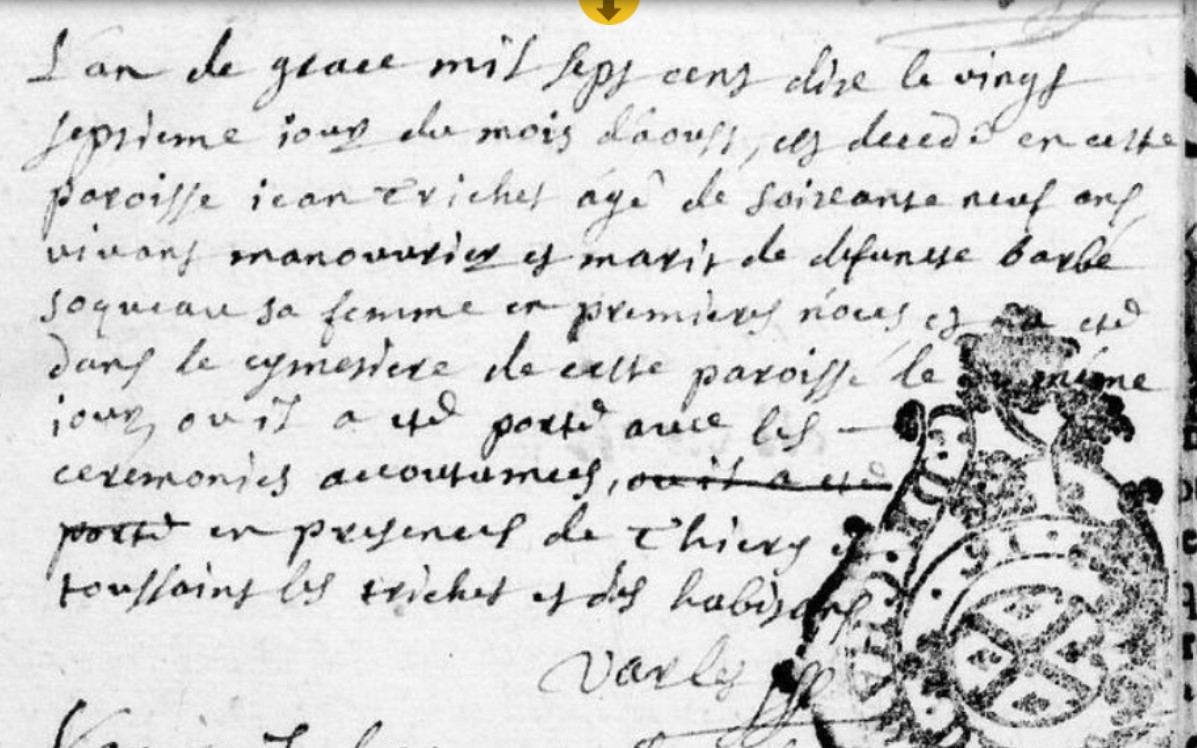 L'an de grace mil sept cent dixe le vingt
septieme iour du mois d'aoust, est decedé en cette
paroisse iean Trichet âgé de soixante neuf ans
vivant manouvrier et marit de defuncte barbe
soqueau sa femme en premieres noces et a eté
dans le cymetiere de cette paroisse le même
iour, ou il a eté porté avec les
ceremonies accoutumees, ou il a eté
porté en presence de Thiery et
toussaint les trichet et des habitans
Varlet